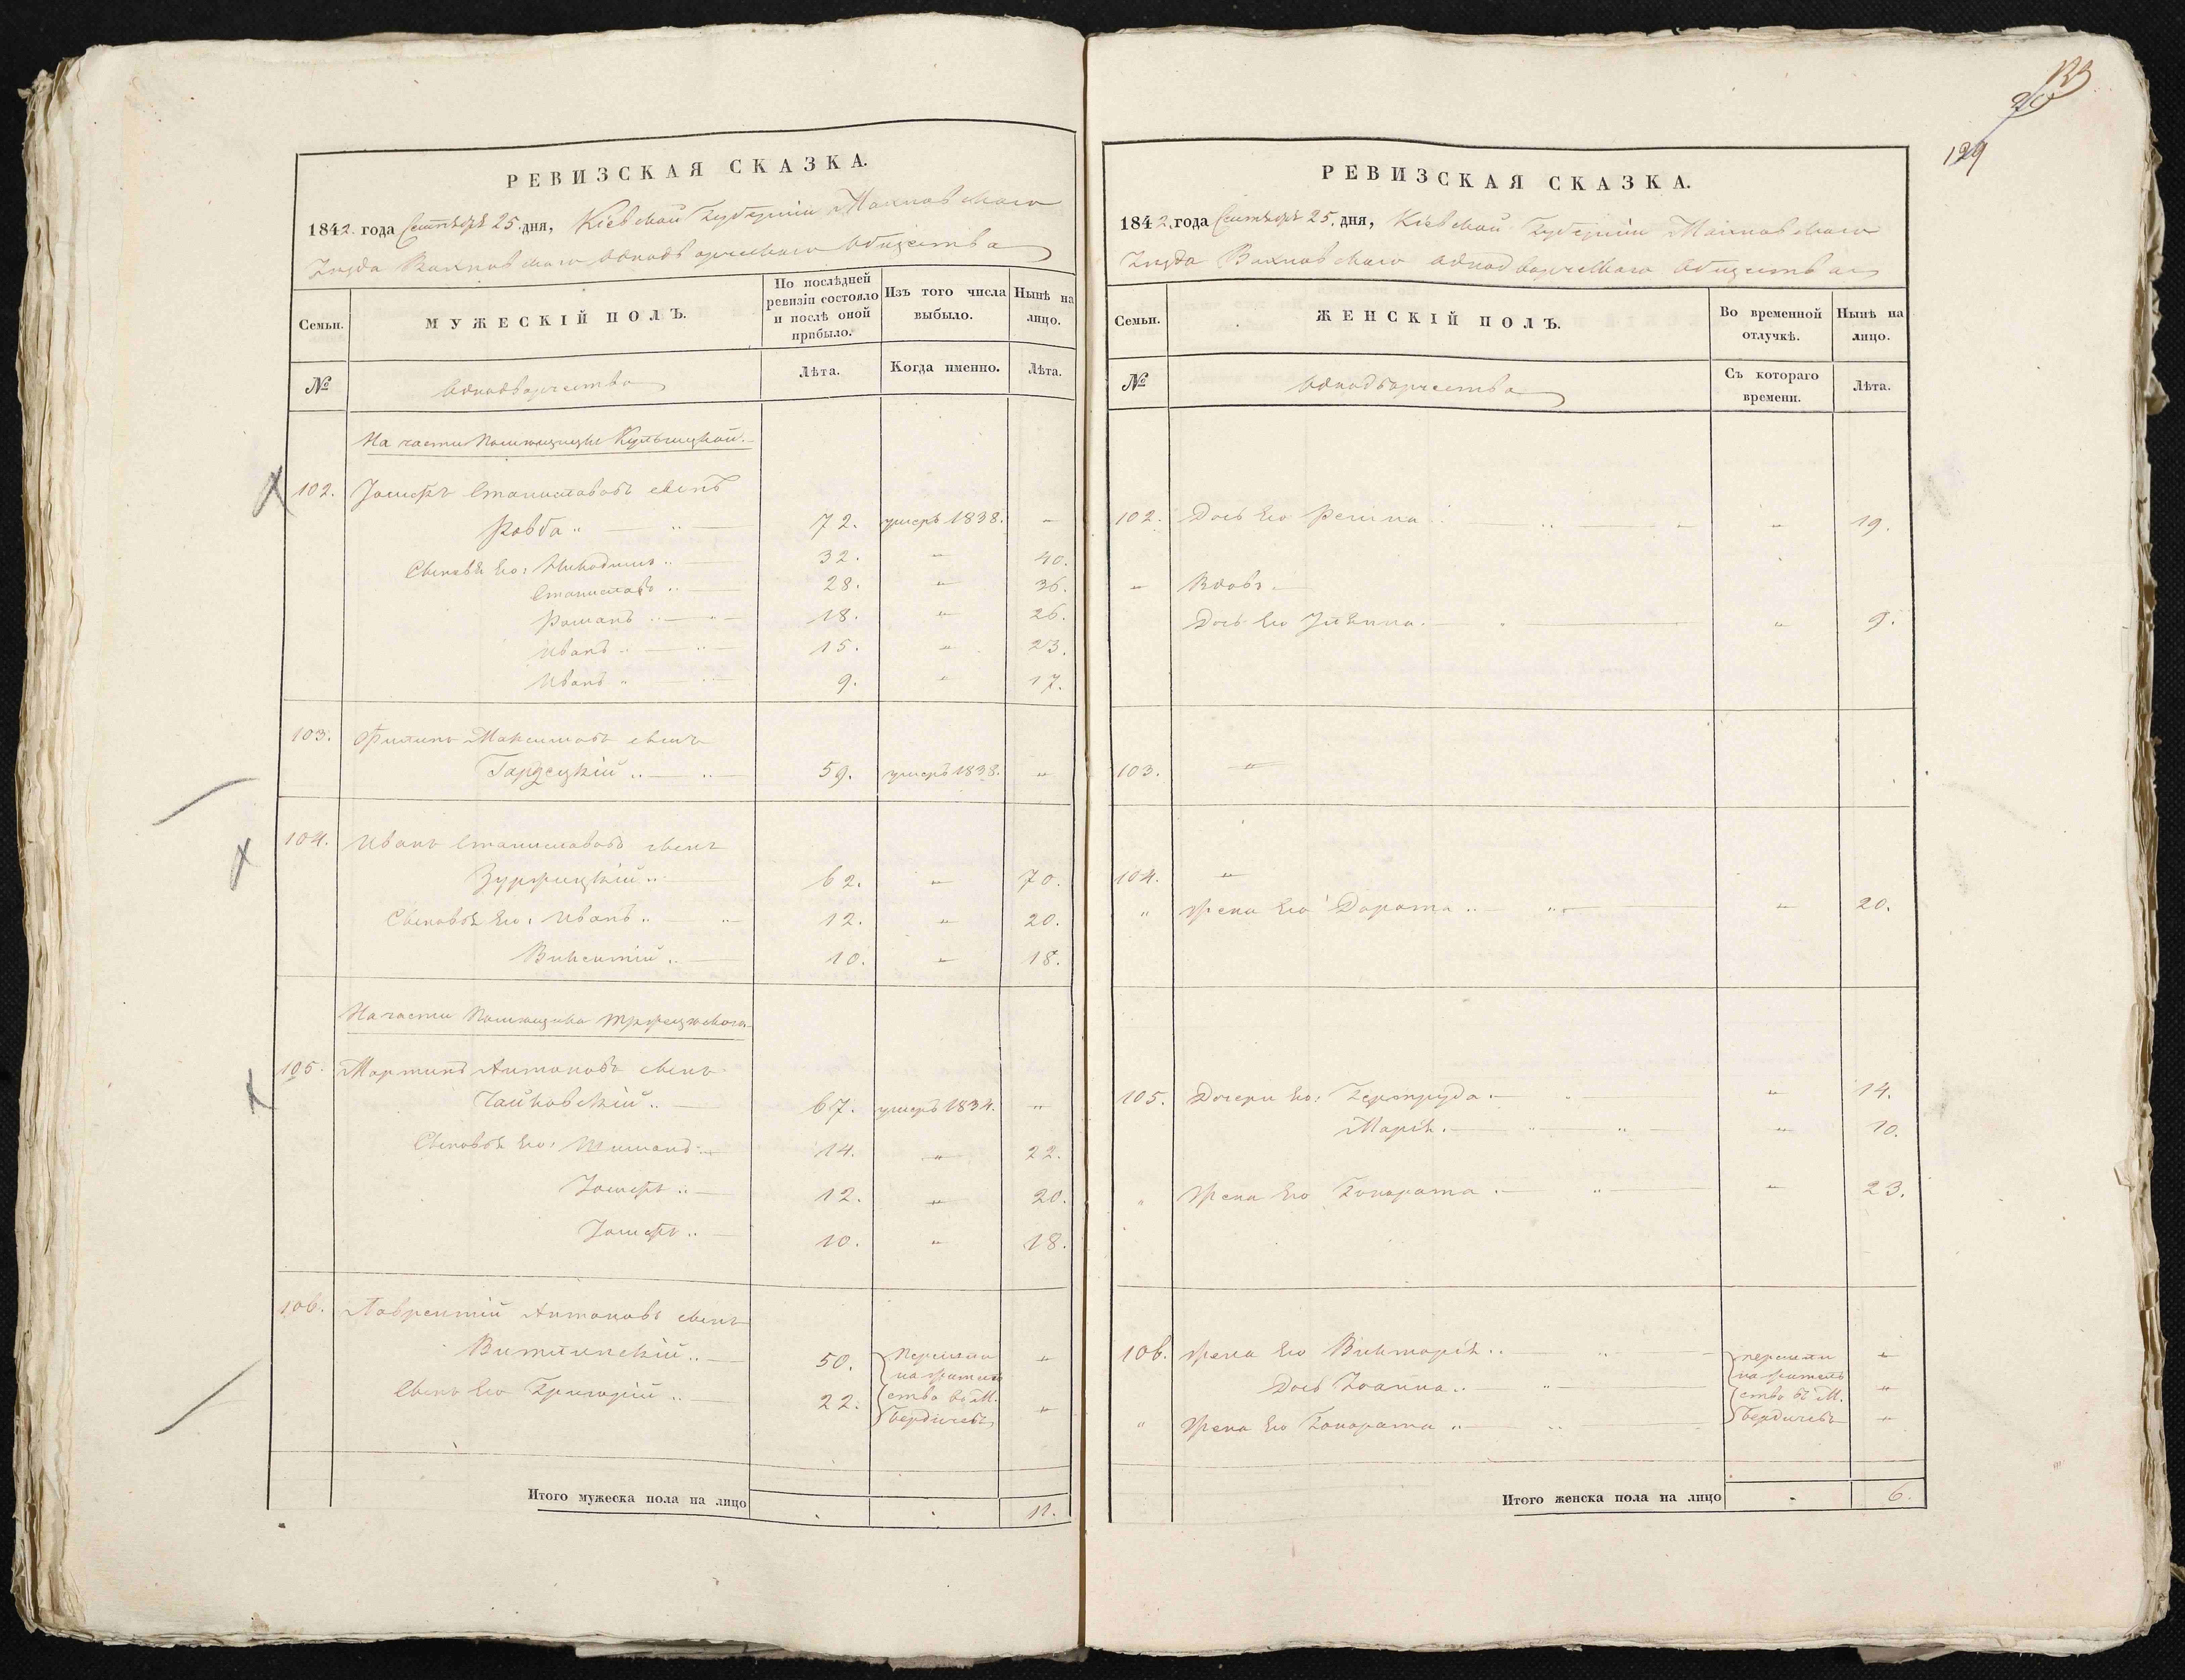 РЕВИЗСКАЯ СКАЗКА.
1842. года Сентября 25. дня, Кіевской Губерніи Махновскаго
Уезда Вахновскаго Однодворческаго Общества
Семьи.
МУЖЕСКІЙ ПОЛЪ.
По послѣдней ревизіи состояло и послѣ оной прибыло.
Изъ того числа выбыло.
Нынѣ на лицо.
№
Однодворчества
Лѣта.
Когда именно.
Лѣта.
На части Помещицы
102. Іосифъ Станиславовъ сынъ
Ровба 72. умеръ 1838. –
Сыновья Его: Никодимъ 32. " 40.
Станиславъ 28. " 36.
Романъ 18. " 26.
Иванъ 15. " 23.
Иванъ 9. " 17.
103. Филипъ Максимовъ сынъ
59. умеръ 1838. "
104. Иванъ Станиславовъ сынъ
62. " 70.
Сыновья Его: Иванъ 12. " 20.
Викентій 10. " 18.
На части Помещика
105. Мартинъ Антоновъ сынъ
Чайковскій 67. умеръ 1834. "
Сыновья Его: 14. " 22.
Іосифъ 12. " 20.
Іосифъ 10. " 18.
106. Лаврентій Антоновъ сынъ
50. Перешли "
на житель
Сынъ Его Григорій 22. ство въ М. "
Бердичевъ
Итого мужеска пола на лицо . . 12.
133
20
129
РЕВИЗСКАЯ СКАЗКА.
1842. года Сентября 25. дня, Кіевской Губерніи Махновскаго
Уезда Вахновскаго однодворческаго Общества
Семьи.
ЖЕНСКІЙ ПОЛЪ.
Во временной отлучкѣ.
Нынѣ на лицо.
№
Однодворчества
Съ котораго времени.
Лѣта.
102. Дочь Его " 19.
" Вдовъ
Дочь Его " 9.
103. "
104. "
" Жена Его Дорота " 20.
105. Дочери Его: Гертруда " 14.
Марія " 10.
" Жена Его Гонората " 23.
106. Жена Его Викторія перешли "
на житель
Дочь Іоанна ство въ М. "
" Жена Его Гонората Бердичевъ "
Итого женска пола на лицо . 6.